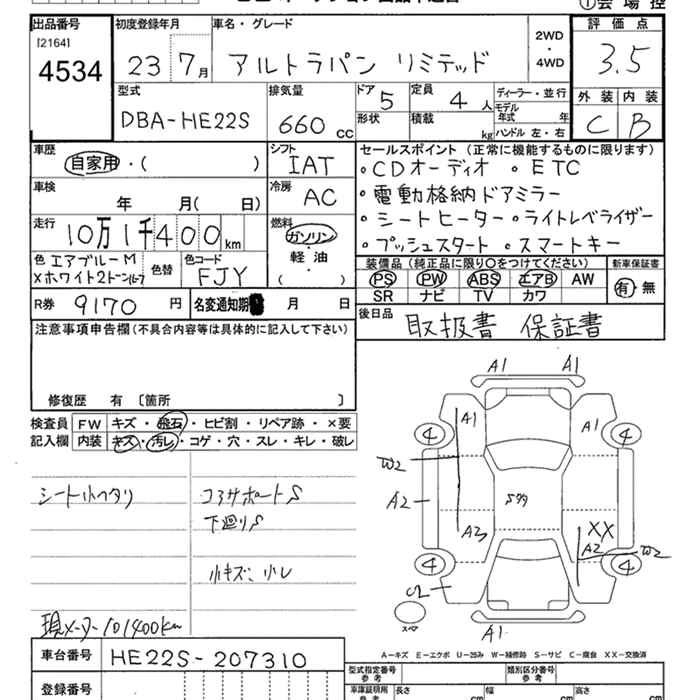 ①会場控
出品番号 初度登録年月 車名・グレード 評価点
[2164]
4534 23年 7月 アルトラパン リミテッド 2WD ・ 4WD 3.5
型式 排気量 ドア 定員 ディーラー・並行 外装 内装
DBA-HE22S 660cc 5 4人 モデル年式 年 C B
形状 積載 kg ハンドル 左・右
車歴 シフト セールスポイント(正常に機能するものに限ります)
自家用・( ) IAT ・CDオーディオ ・ETC
車検 冷房 ・電動格納ドアミラー
年 月( 日) AC ・シートヒーター ・ライトレベライザー
走行 燃料 ・プッシュスタート ・スマートキー
10万1千400km ガソリン・軽油・( )
色 エアブルーM 色替 色コード 装備品(純正品に限り○をつけてください) 新車保証書
Xホワイト2トーン(ルーフ FJY PS PW ABS エアB AW 有・無
SR ナビ TV カワ
R券 9170円 名変通知期限 月 日 後日品 取扱書 保証書
注意事項申告欄(不具合内容等は具体的に記入して下さい)
修復歴 有 〔箇所 〕
検査員 FW キズ・飛石・ヒビ割・リペア跡・×要
記入欄 内装 キズ・汚レ・コゲ・穴・スレ・キレ・破レ
シート小ヘタリ コアサポートS
下廻りS
小キズ、小レ
現メーター101400km
A1 A1
A1 A1
4 4
W2
A2 S99
XX
A2 A2 W2
4 4
C2
スペア
A1
A-キズ E-エクボ U-凹み W-補修跡 S-サビ C-腐食 XX-交換済
車台番号 HE22S-207310 型式指定番号 参考 類別区分番号 参考
登録番号 車庫証明用 参考 長さ cm 幅 cm 高さ cm